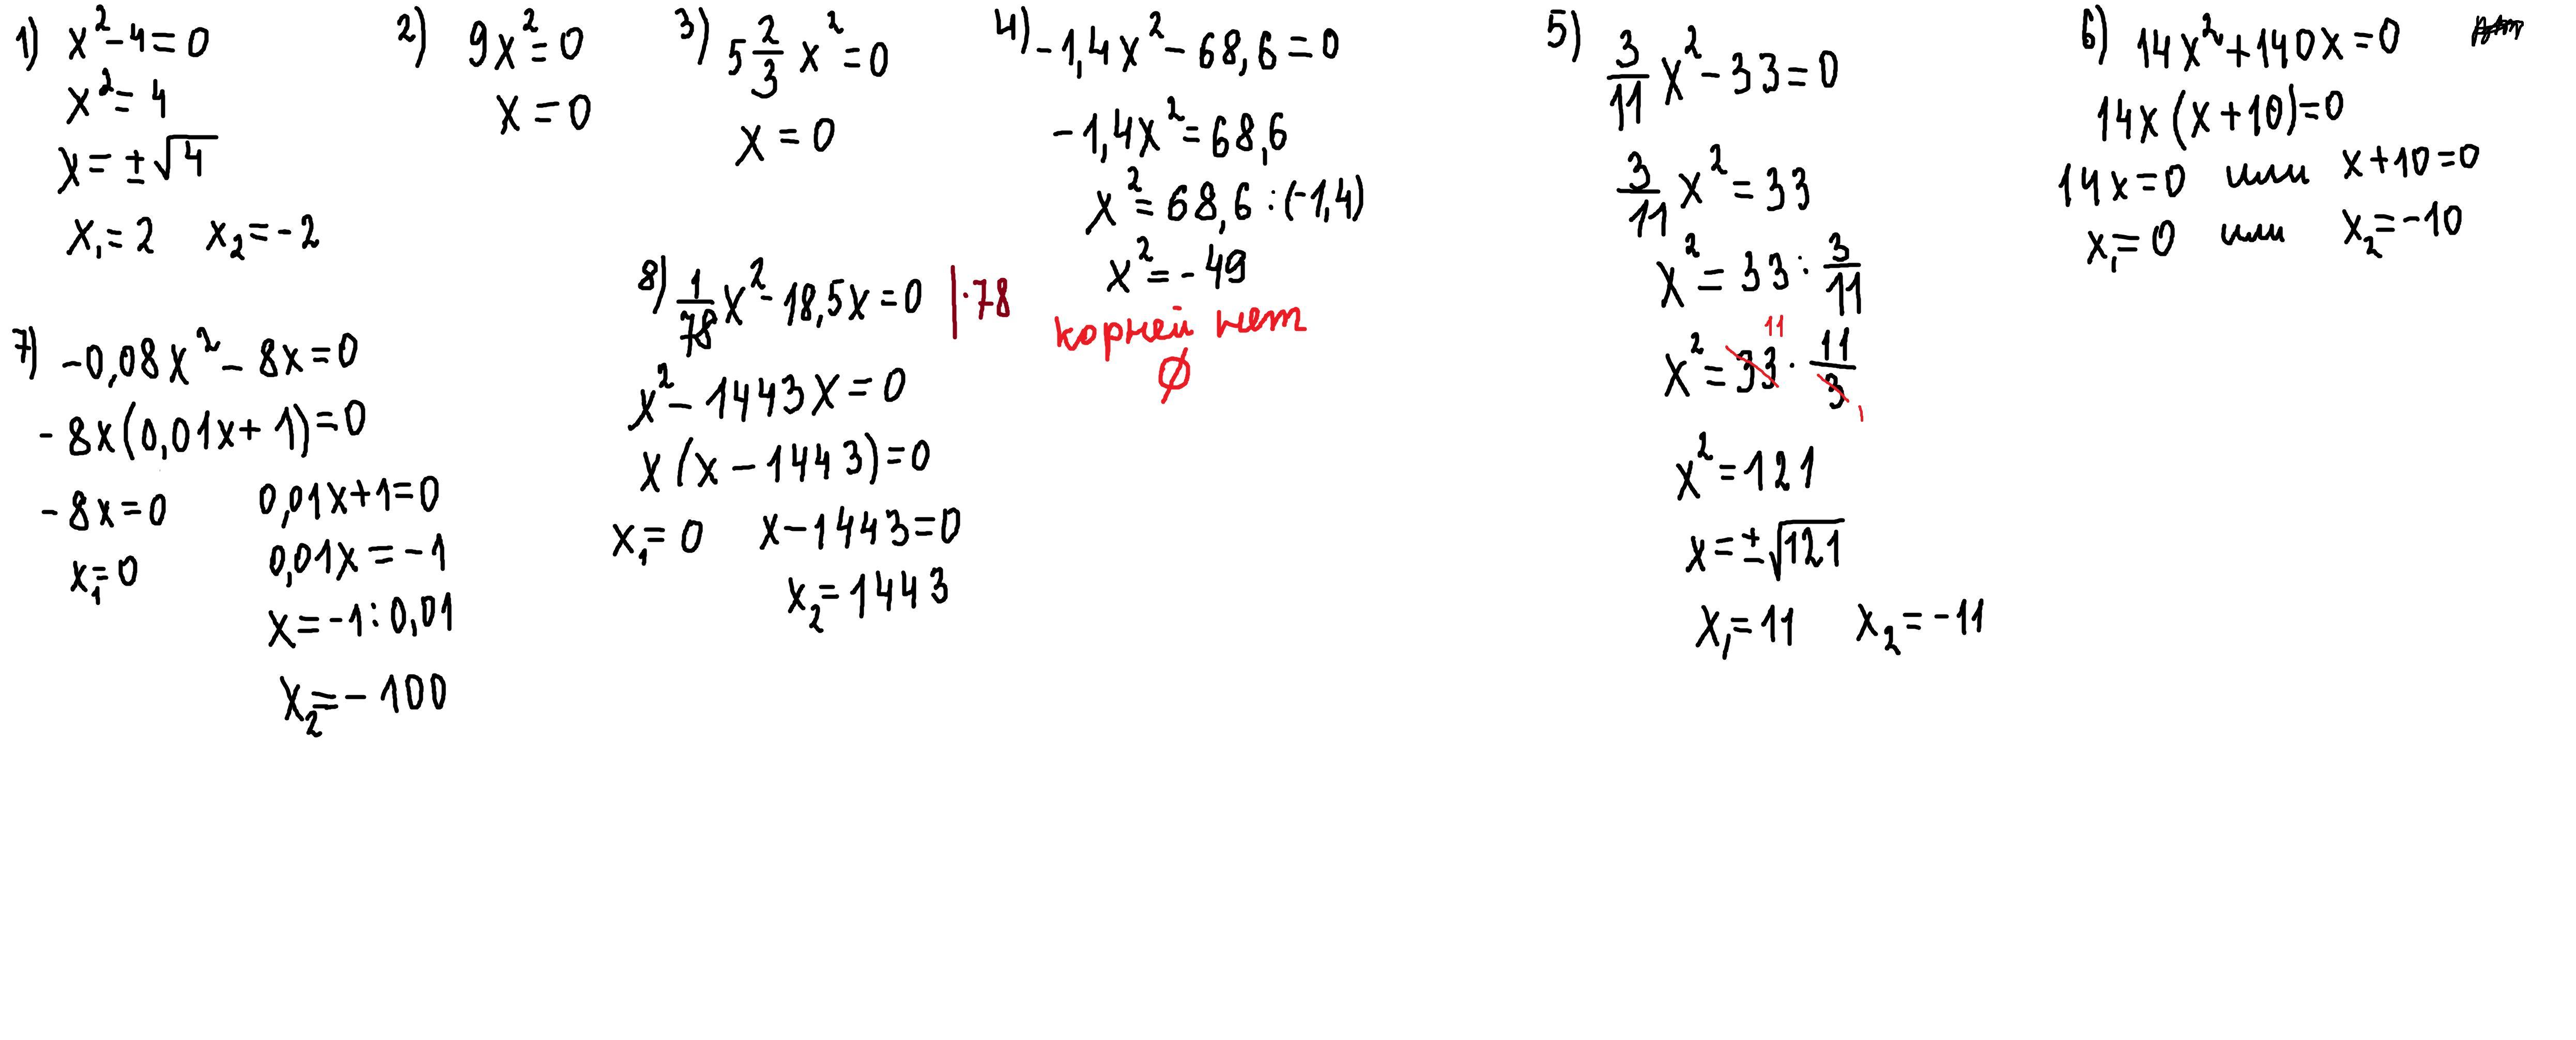 1) x²-4=0
x²=4
x=±√4
x₁=2 x₂=-2
2) 9x²=0
x=0
3) 5 2/3 x²=0
x=0
4) -1,4x²-68,6=0
-1,4x²=68,6
x²=68,6:(-1,4)
x²=-49
корней нет
∅
5) 3/11 x²-33=0
3/11 x²=33
x²=33:3/11
11
x²=33·11/3
1
x²=121
x=±√121
x₁=11 x₂=-11
6) 14x²+140x=0
14x(x+10)=0
14x=0 или x+10=0
x₁=0 или x₂=-10
7) -0,08x²-8x=0
-8x(0,01x+1)=0
-8x=0 0,01x+1=0
x₁=0 0,01x=-1
x=-1:0,01
x₂=-100
8) 1/78 x²-18,5x=0 |·78
x²-1443x=0
x(x-1443)=0
x₁=0 x-1443=0
x₂=1443